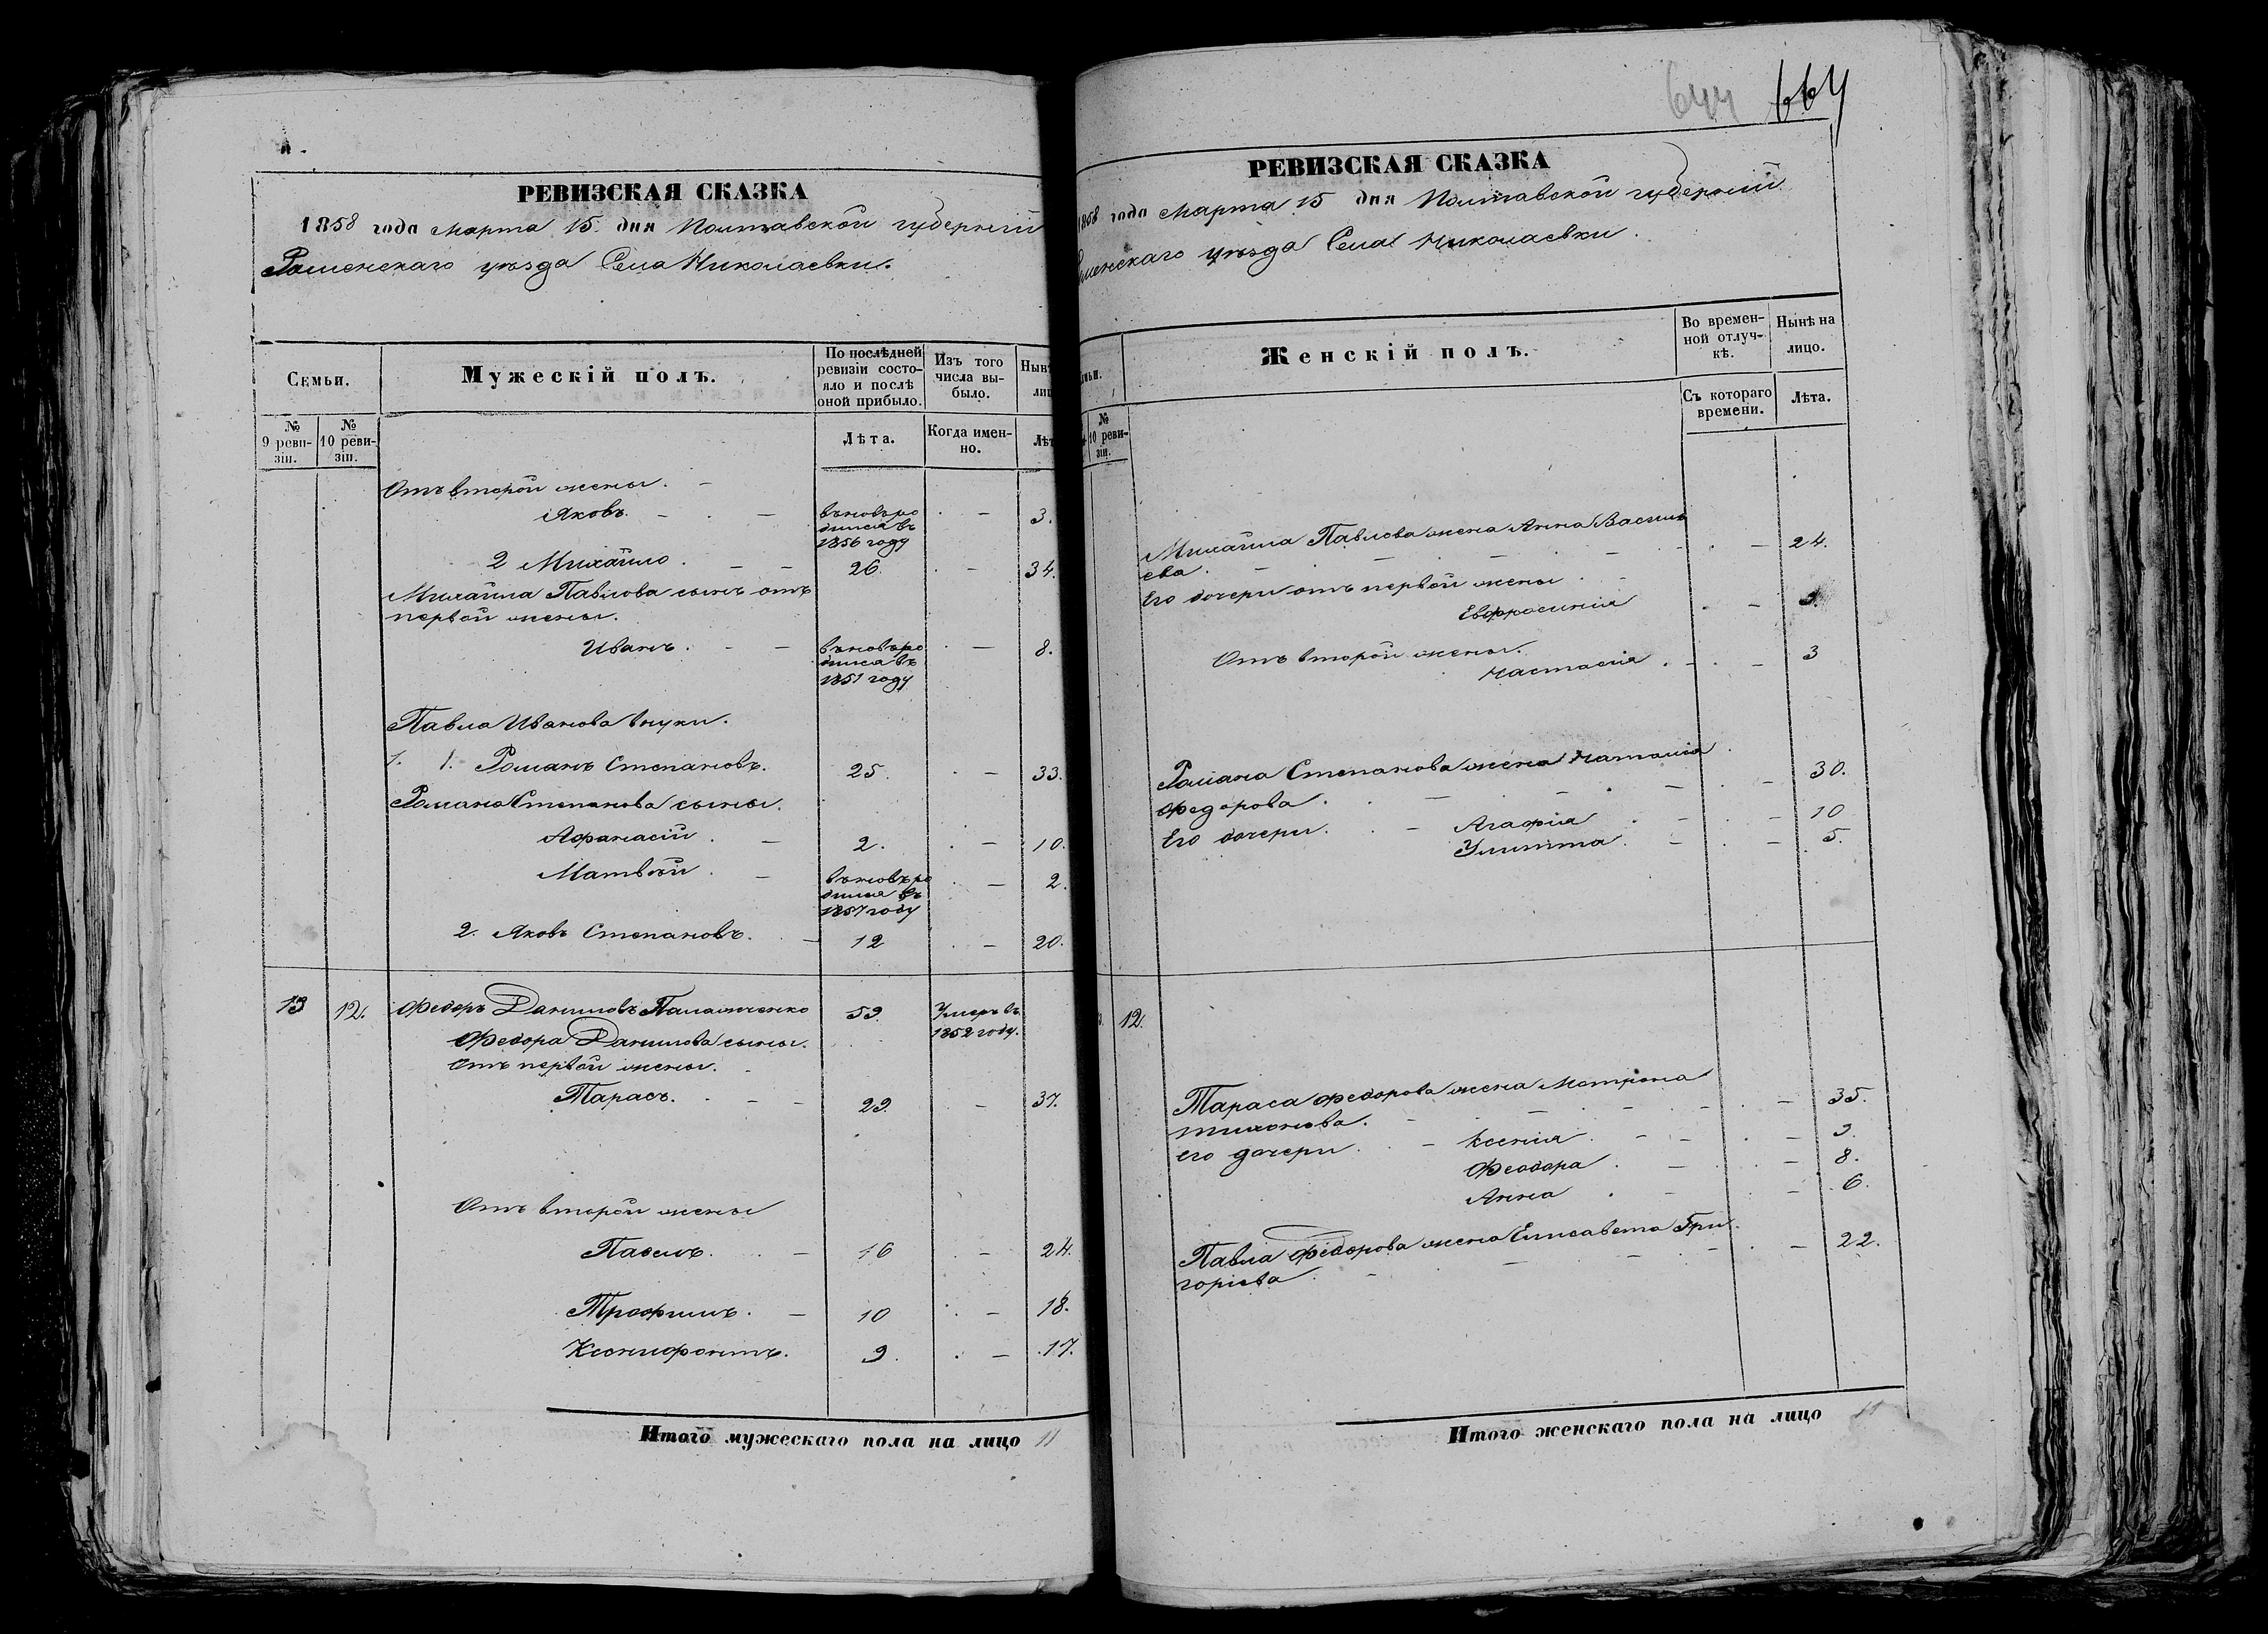 РЕВИЗСКАЯ СКАЗКА
1858 года Марта 15. дня Полтавской губерніи
Роменскаго уѣзда Села Николаевки.
Семьи.
Мужескій полъ.
По послѣдней
ревизіи состо-
яло и послѣ
оной прибыло.
Изъ того
числа вы-
было.
Нынѣ
лиц
№
9 реви-
зіи.
№
10 реви-
зіи.
Лѣта.
Когда имен-
но.
Лѣт
Отъ второй жены. -
Яковъ. - . - вновь ро . - 3.
дился въ
1856 году
2 Михайло . - - 26. . - 34.
Михайла Павлова сынъ отъ
первой жены.
Иванъ. - - вновь ро . - 8.
дился въ
1851 году
Павла Иванова внуки.
1. 1. Романъ Степановъ. 25. . - 33.
Романа Степанова сыны.
Афанасій . - 2. . - 10.
Матвѣй . - вновь ро . - 2.
дился въ
1857 году
2. Яковъ Степановъ. - 12 . - 20.
13 12. Федоръ Даниловъ 59. Умеръ въ
1852 году.
Федора Данилова сыны.
Отъ первой жены.
Тарасъ. . - - 29. - 37.
Отъ второй жены
Павелъ. . - 16 . - 24.
Трофимъ. - 10 . - 18.
Ксенифонтъ. 9. . - 17.
Итого мужескаго пола на лицо 11
644 664
РЕВИЗСКАЯ СКАЗКА
1858 года Марта 15 дня Полтавской губерніи
оменскаго уѣзда Села Николаевки.
мьи.
Женскій полъ.
Во времен-
ной отлуч-
кѣ.
Нынѣ на
лицо.
№
10 реви-
зіи.
Съ котораго
времени.
Лѣта.
Михайла Павлова жена Анна Василь
ева . - - - - . - 24.
Его дочери отъ первой жены . -
Евфросинія . - 9.
Отъ второй жены.
Настасія . - . - 3
Романа Степанова жена Наталія
Федорова . . - - . - . - 30.
Его дочери. . - Агафія . - . - 10
Улита . - . - 5.
12.
Тараса Федорова жена Матрона
Тихонова. - - - . - . - 35.
Его дочери . . - Ксенія . - - . - 9.
Феодора . - . . - 8.
Анна . - . - 6.
Павла Федорова жена Елисавета Гри
горіева . - - - - . - 22.
Итого женскаго пола на лицо 11